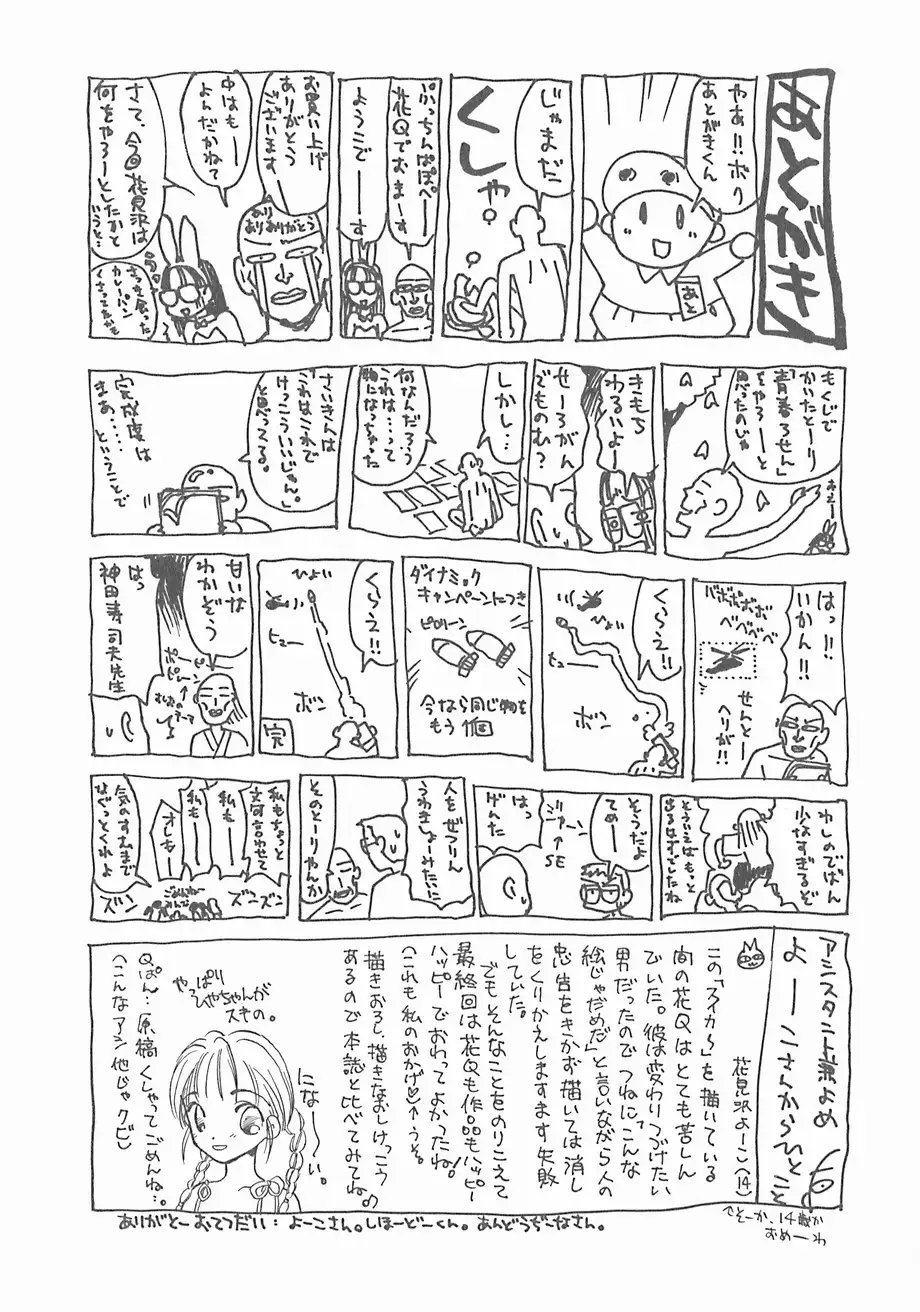 あとがき
やあ!!ボク
あとがきくん
あと
じゃまだ
くしゃ
ぷっちんぱぽぺー
花Qでおまーす
ようこでーす
お買い上げ
ありがとう
ございます
ありがとう
中はもー
よんだかね
さて、今回花見沢は
何をやろーとしたかと
いうと…
さっき食った
カレーパン
くさってたかも
もくじで
かいたとーり
「青春ろせん」
をやろーと
思ったのじゃ
おえー
きもち
わるいよー
せーろがん
でものむ?
しかし…
何なんだろう
これは…って
物になっちゃった
さいきんは
「これはこれで
けっこういいじゃん。」
と思ってる。
完成度は
まあ……
ということで
はっ!!
いかん!!
バボボボボ
ベベベベ
せんとー
ヘリが!!
くらえ!!
ひょい
ヒュー
ボン
ダイナミック
キャンペーンにつき
ピロリーン
今なら同じ物を
もう1個
くらえ!!
ひょい
ヒュー
ボン
完
甘いな
わかぞう
はっ
神田寿司夫先生
わしのでばん
少なすぎるぞ
そういえばもっと
出るはずでしたね
そうだよ
てめー
ジャーン
↑SE
はっ
げんた
人をぜつりん
うわきしょーみたいに
そのとーりやんか
私もちょっと
文句言わせて
私もー
私もー
オレもー
ごめんねー
みんな
ズンズン
ズン
気のすむまで
なぐっとくれよ
アシスタント兼よめ
よーこさんからひとこと
花見沢よーこ(14)
↑そーか、14歳か
おめーわ
この「スイカ〜」を描いている
間の花Qはとても苦しん
でいた。彼は変わりつづけたい
男だったのでつねに「こんな
絵じゃだめだ」と言いながら人の
忠告をきかず描いては消し
をくりかえしますます失敗
していた。
でもそんなことをのりこえて
最終回は花Qも作品もハッピー
ハッピーでおわってよかったね!
(これも私のおかげ♡↑うそ。
描きおろし、描きなおしけっこう
あるので本誌と比べてみてね♪
になー〜い。
やっぱり
ひやちゃんが
スキの。
Qぱん…原稿くしゃってごめんね…。
(こんなアシ他じゃクビ)
ありがとーおてつだい:よーこさん。しほーどーくん。あんどうぢーなさん。